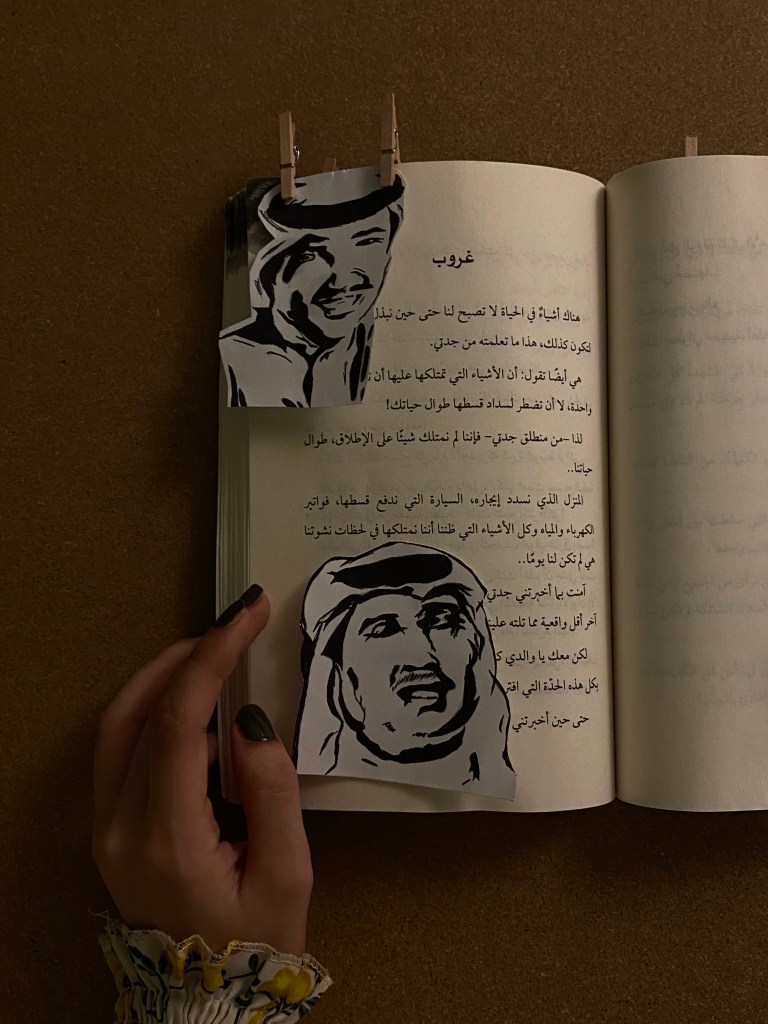 غروب
هناك أشياءٌ في الحياة لا تصبح لنا حتى حين نبذل
لتكون كذلك، هذا ما تعلمته من جدتي.
هي أيضًا تقول: أن الأشياء التي تمتلكها عليها أن
واحدة، لا أن تضطر لسداد قسطها طوال حياتك!
لذا -من منطلق جدتي- فإننا لم نمتلك شيئًا على الإطلاق، طوال
حياتنا..
المنزل الذي نسدد إيجاره، السيارة التي ندفع قسطها، فواتير
الكهرباء والمياه وكل الأشياء التي ظننا أننا نمتلكها في لحظات نشوتنا
هي لم تكن لنا يومًا..
آمنت بما أخبرتني جدتي
آخر أقل واقعية مما تلته علينا
لكن معك يا والدي
بكل هذه الحدّة التي
حتى حين أخبرتني